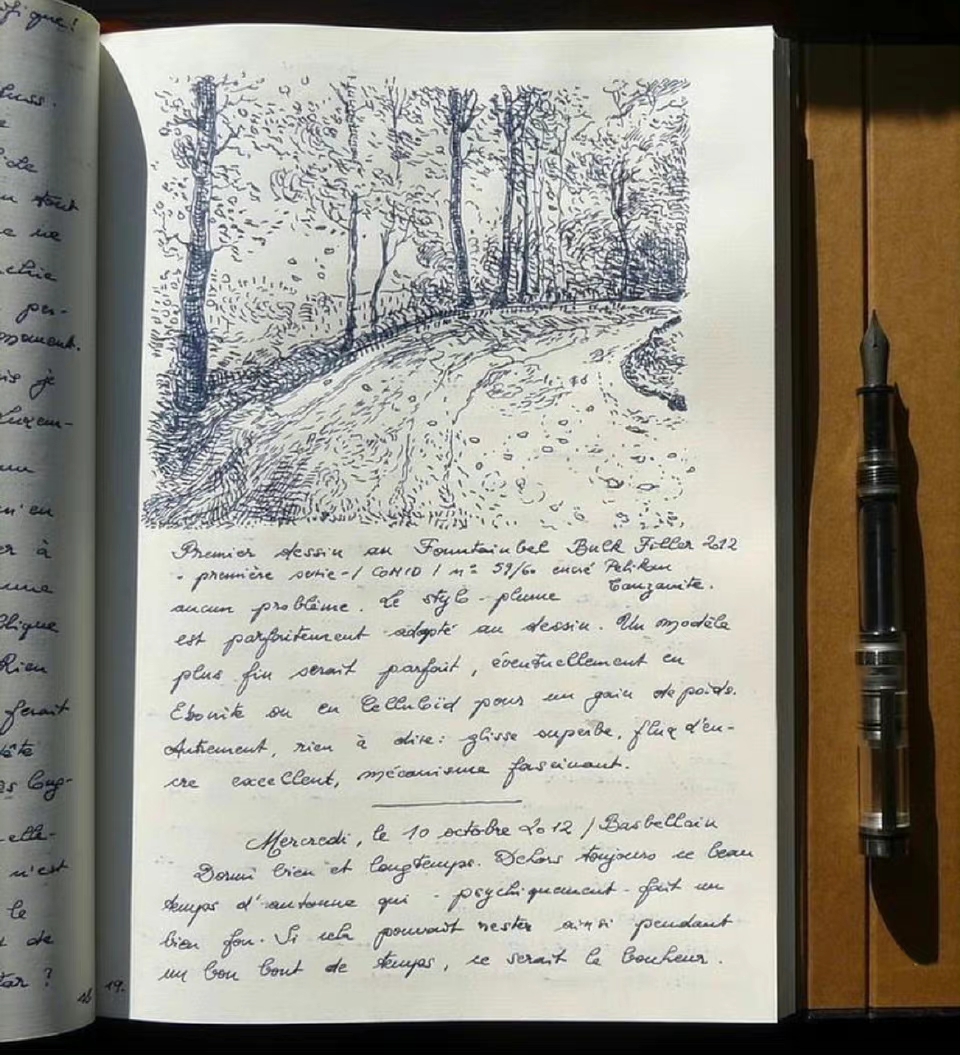 tout
ne
per-
je
à
Rien
ferait
long-
elle-
n'est
le
de
?
18
19.
Premier dessin au Fountainbel Bulk Filler 2012
- première serie - / n° 59/60 encré Pelikan
Tanzanite.
aucun problème. Le stylo-plume
est parfaitement adapté au dessin. Un modèle
plus fin serait parfait, éventuellement en
Ebonite ou en Celluloïd pour un gain de poids.
Autrement, rien à dire: glisse superbe, flux d'en-
cre excellent, mécanisme fascinant.
Mercredi, le 10 octobre 2012 / Basbellain
Dormi bien et longtemps. Dehors toujours ce beau
temps d'automne qui - psychiquement - fait un
bien fou. Si cela pouvait rester ainsi pendant
un bon bout de temps, ce serait le bonheur.